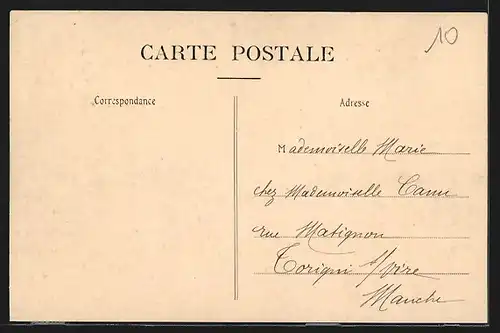 10
CARTE POSTALE
Correspondance
Adresse
Mademoiselle Marie
chez Mademoiselle Canu
rue Matignon
Torigni s/vire
Manche